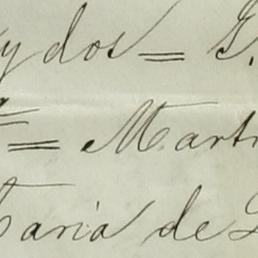 y dos = G.
= Mart
Maria de